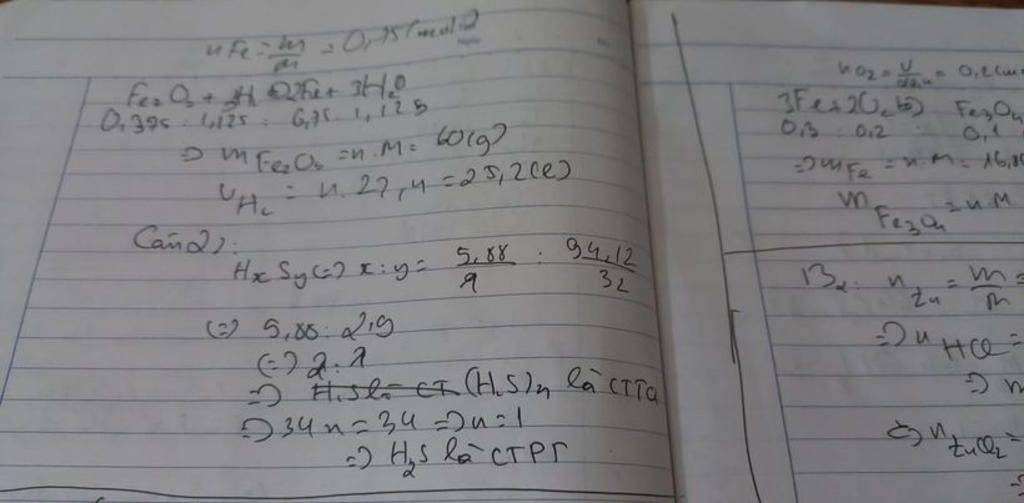 nFe = m/M = 0,75(mol)
Fe2O3 + 3H2 → 2Fe + 3H2O
0,375 : 1,125 : 0,75 : 1,125
=> mFe2O3 = n.M = 60(g)
VH2 = n.22,4 = 25,2(l)
Câu 2):
HxSy <=> x:y = 5,88/1 : 94,12/32
<=> 5,88 : 2,9
<=> 2:1
=> (H2S)n là CTTQ
=> 34n = 34 => n=1
=> H2S là CTPT
nO2 = V/22,4 = 0,2(m
3Fe + 2O2 Fe3O4
0,3 : 0,2 : 0,1
=> mFe = n.M = 16,8
mFe3O4 = n.M
B2: nZn = m/M =
=> nHCl =
=> m
nZnCl2 =